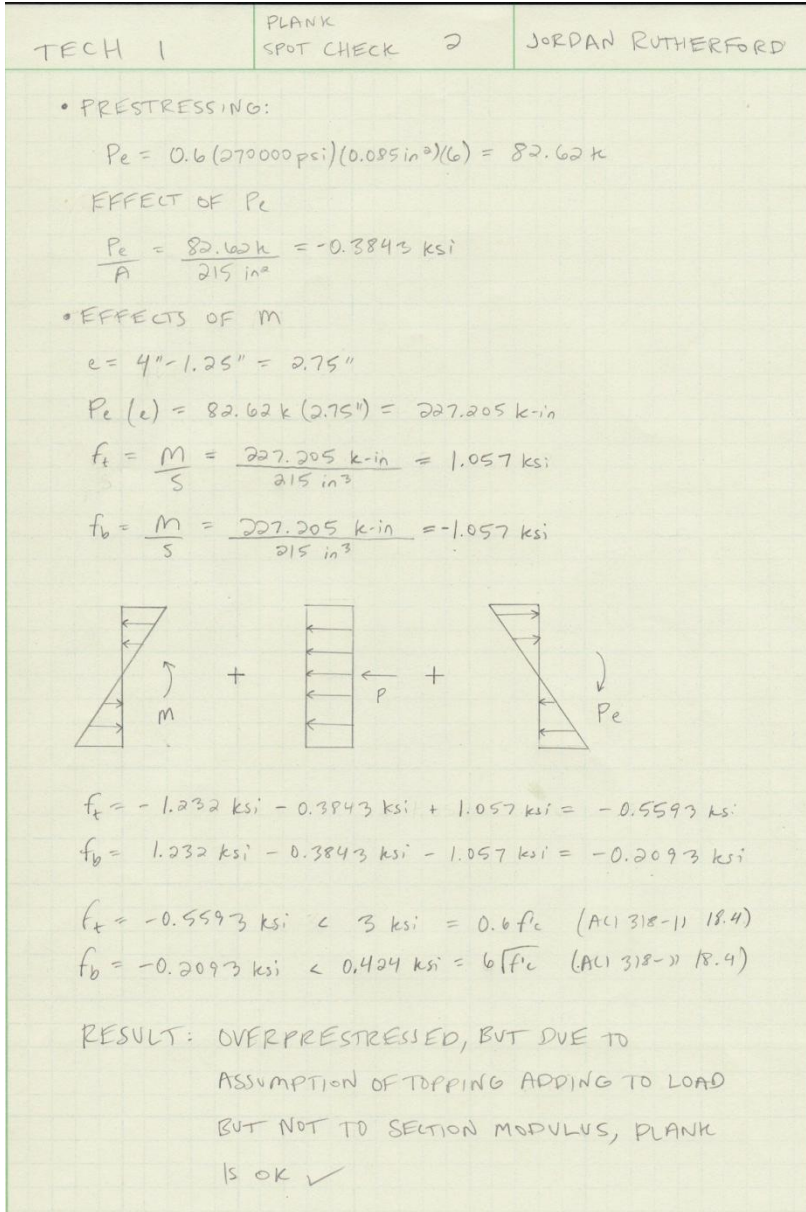 TECH 1
PLANK
SPOT CHECK 2
JORDAN RUTHERFORD
• PRESTRESSING:
Pe = 0.6(270000psi)(0.085in²)(6) = 82.62k
EFFECT OF Pe
Pe/A = 82.62k/215 in² = -0.3843 ksi
• EFFECTS OF M
e = 4"-1.25" = 2.75"
Pe(e) = 82.62k(2.75") = 227.205 k-in
ft = M/S = 227.205 k-in/215 in³ = 1.057 ksi
fb = M/S = 227.205 k-in/215 in³ = -1.057 ksi
M + P + Pe
ft = -1.232 ksi - 0.3843 ksi + 1.057 ksi = -0.5593 ksi
fb = 1.232 ksi - 0.3843 ksi - 1.057 ksi = -0.2093 ksi
ft = -0.5593 ksi < 3 ksi = 0.6f'c (ACI 318-11 18.4)
fb = -0.2093 ksi < 0.424 ksi = 6√f'c (ACI 318-11 18.4)
RESULT: OVERPRESTRESSED, BUT DUE TO
ASSUMPTION OF TOPPING ADDING TO LOAD
BUT NOT TO SECTION MODULUS, PLANK
IS OK ✓